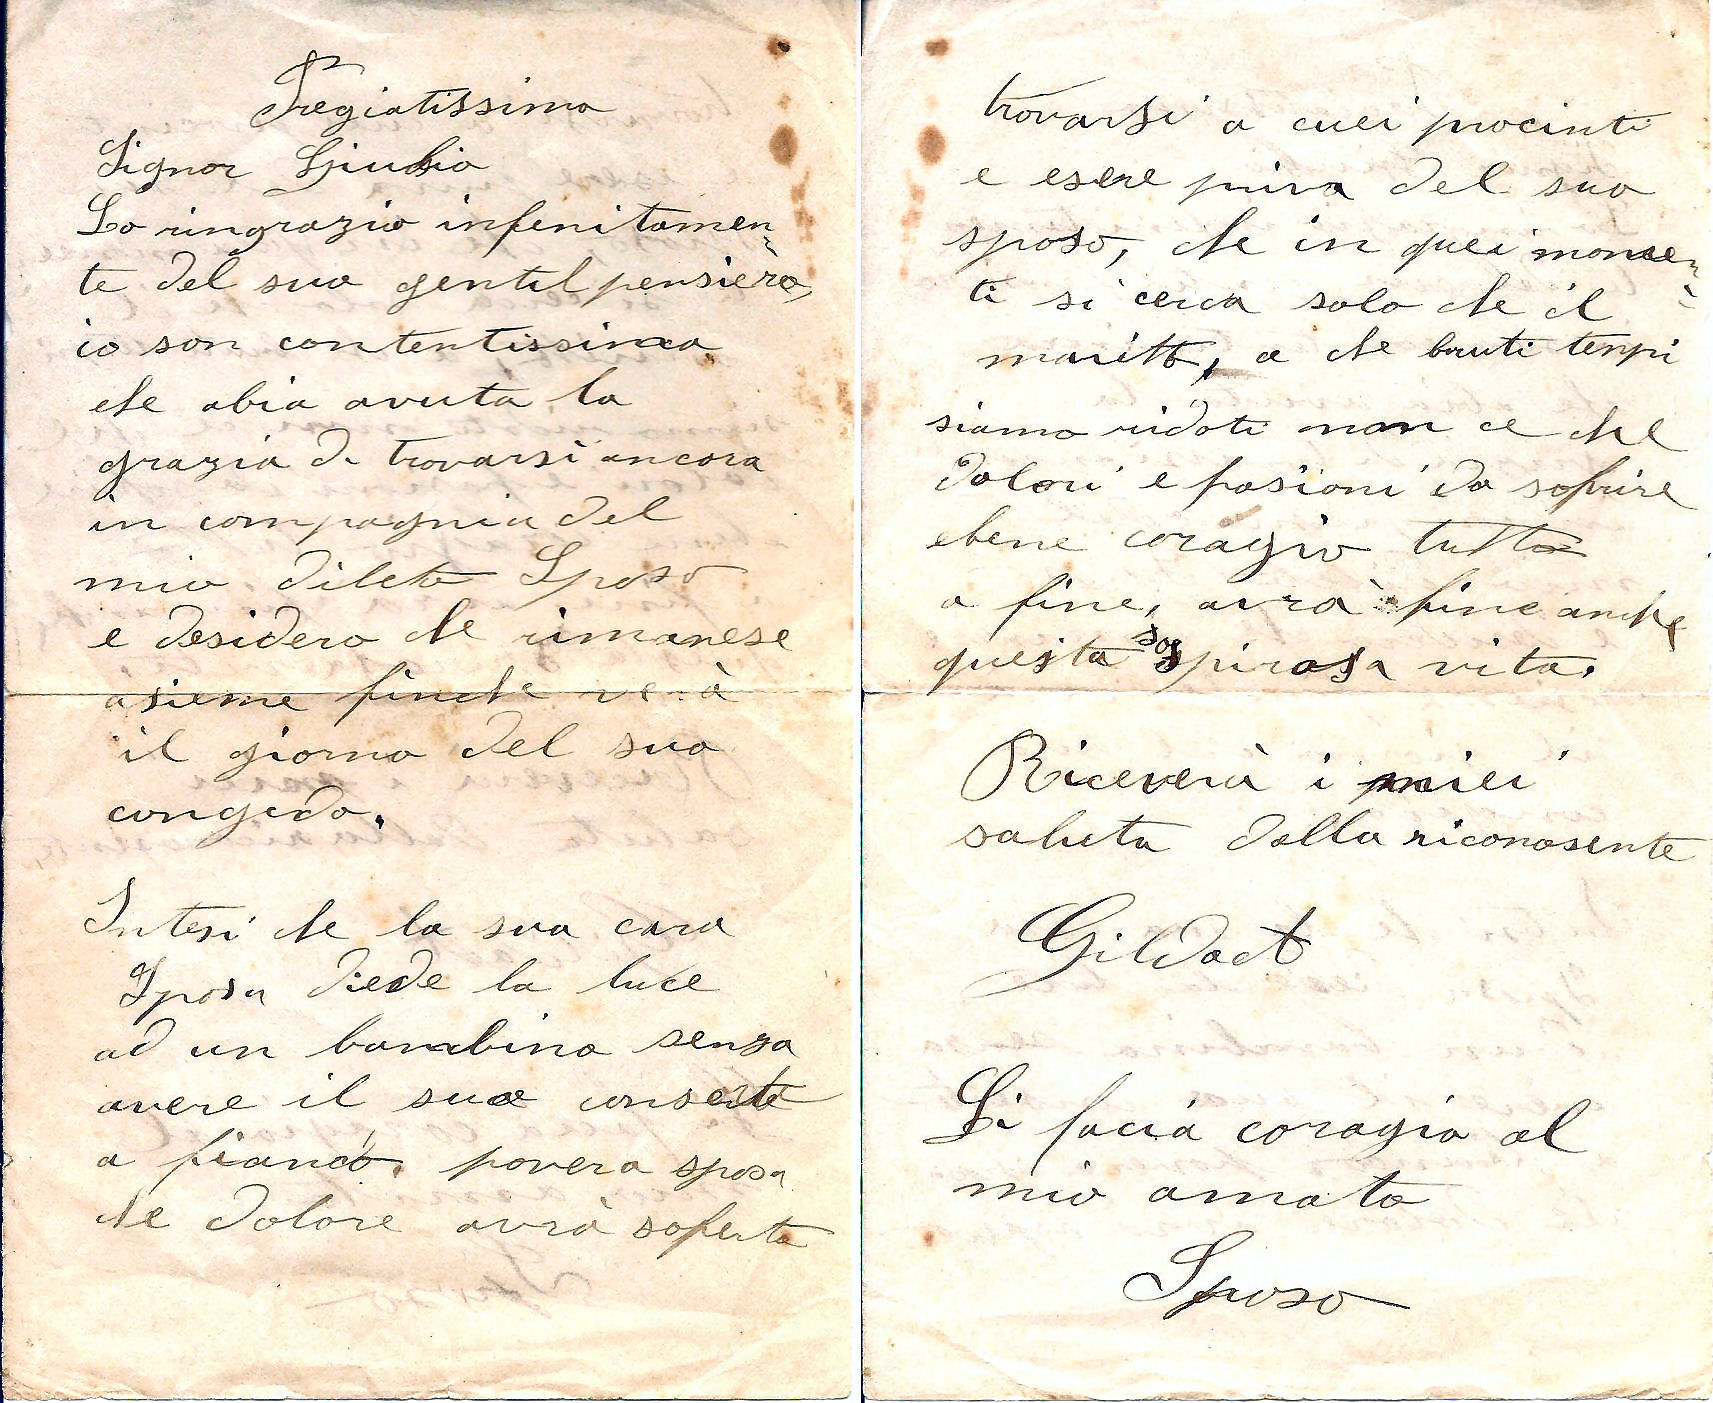 Pregiatissimo
Signor Giulio
Lo ringrazio infenitamen-
te del suo gentil pensiero,
io son contentissima
che abia avuta la
grazia di trovarsi ancora
in compagnia del
mio dileto Sposo
e desidero che rimanese
asieme finche verà
il giorno del suo
congedo.
Intesi che la sua cara
Sposa diede la luce
ad un bambino senza
avere il suo conserte
a fianco. povera sposa
che dolore avrà soferto
trovarsi a cuei procinti
e esere priva del suo
sposo, che in quei momen-
ti si cerca solo che il
marito, a che bruti tempi
siamo ridoti non ce che
dolori e pasioni da sofrire
ebene coragio tutto
a fine, avrà fine anche
questa sospirosa vita.
Riceverà i miei
saluta dalla riconosente
Gilda
Li facia coragio al
mio amato
Sposo